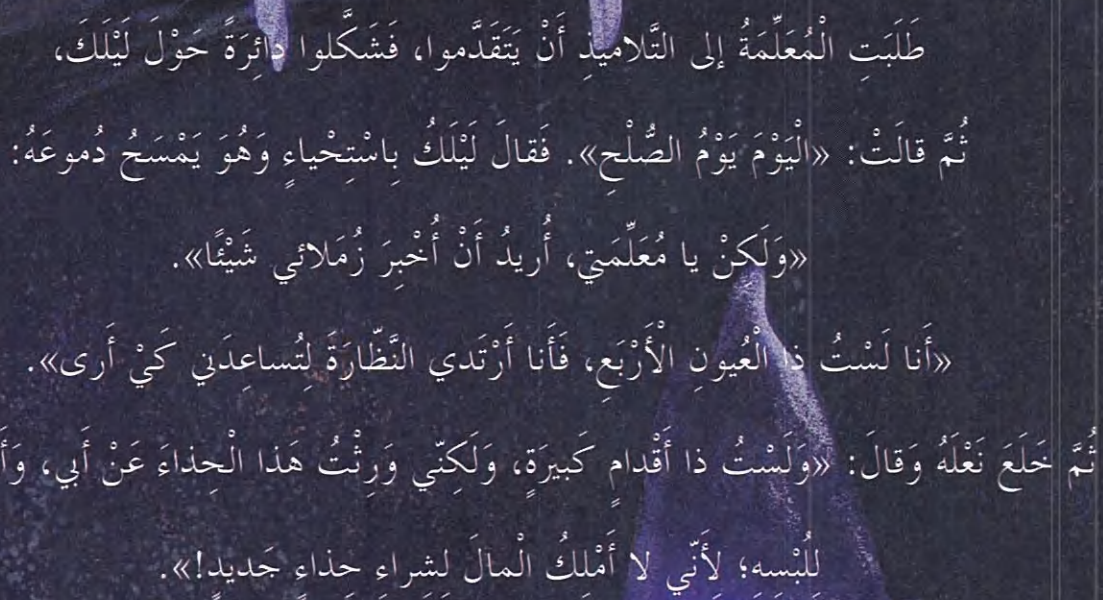 طَلَبَتِ الْمُعَلِّمَةُ إلى التَّلاميذِ أَنْ يَتَقَدَّموا، فَشَكَّلوا دائِرَةً حَوْلَ لَيْلَكَ،
ثُمَّ قالَتْ: «الْيَوْمَ يَوْمُ الصُّلْحِ». فَقالَ لَيْلَكُ بِاسْتِحْياءٍ وَهُوَ يَمْسَحُ دُموعَهُ:
«وَلَكِنْ يا مُعَلِّمَتي، أُريدُ أَنْ أُخْبِرَ زُمَلائي شَيْئًا».
«أَنا لَسْتُ ذا الْعُيونِ الْأَرْبَعِ، فَأَنا أَرْتَدي النَّظّارَةَ لِتُساعِدَني كَيْ أَرى».
ثُمَّ خَلَعَ نَعْلَهُ وَقالَ: «وَلَسْتُ ذا أَقْدامٍ كَبيرَةٍ، وَلَكِنّي وَرِثْتُ هَذا الْحِذاءَ عَنْ أَبي،
لِلُبْسِهِ؛ لِأَنّي لا أَمْلِكُ الْمالَ لِشِراءِ حِذاءٍ جَديدٍ!».